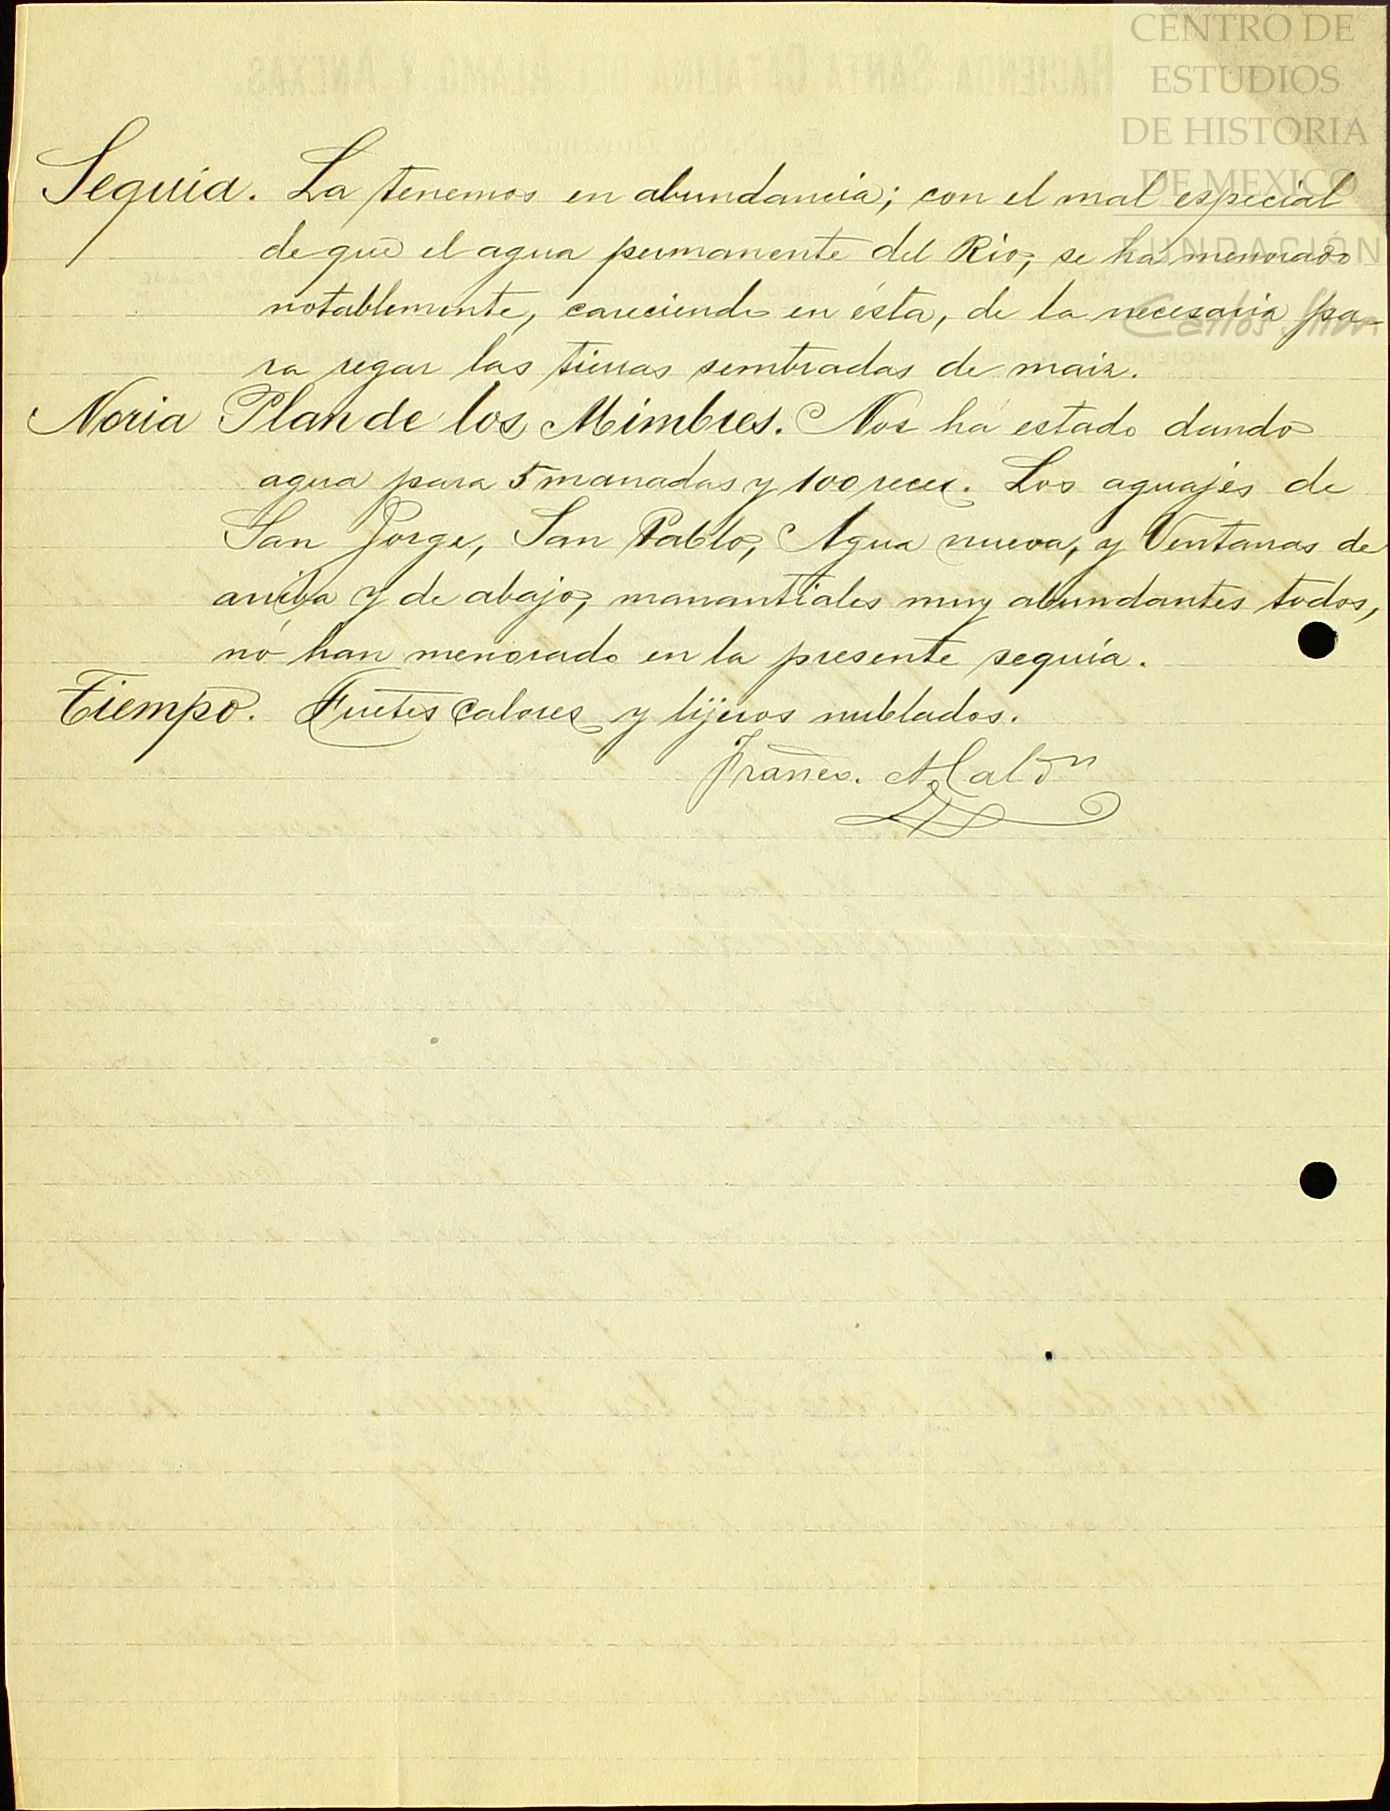 CENTRO DE
ESTUDIOS
DE HISTORIA
DE MEXICO
FUNDACIÓN
Carlos Slim
HACIENDA SANTA CATALINA ALAMO Y ANEXAS.
Sequia. La tenemos en abundancia; con el mal especial
de que el agua permanente del Rio, se ha menorado
notablemente, careciendo en ésta, de la necesaria pa-
ra regar las tierras sembradas de maiz.
Noria Plan de los Mimbres. Nos ha estado dando
agua para 5 manadas y 100 reces. Los aguajes de
San Jorge, San Pablo, Agua nueva, y Ventanas de
arriba y de abajo, manantiales muy abundantes todos,
nó han menorado en la presente sequía.
Tiempo. Fuetes calores y lijeros nublados.
Franco. Maldn